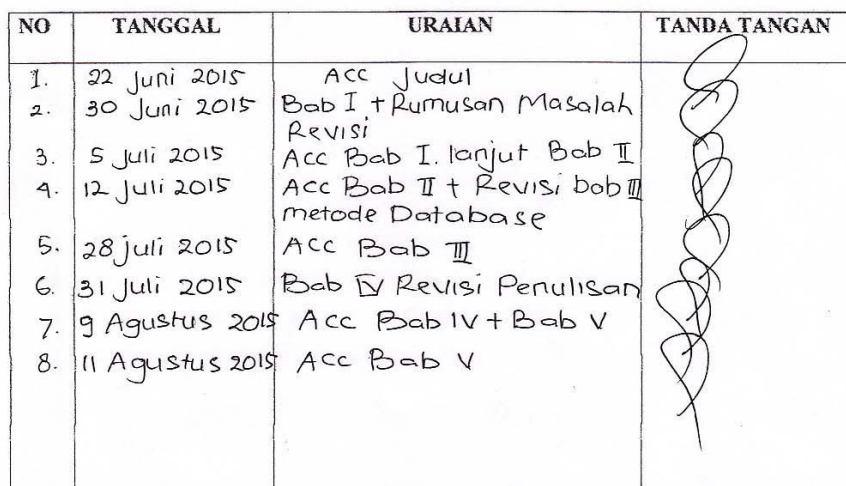 NO TANGGAL URAIAN TANDA TANGAN
1. 22 Juni 2015 Acc Judul
2. 30 Juni 2015 Bab I + Rumusan Masalah
Revisi
3. 5 Juli 2015 Acc Bab I. lanjut Bab II
4. 12 Juli 2015 Acc Bab II + Revisi bab III
metode Database
5. 28 juli 2015 Acc Bab III
6. 31 Juli 2015 Bab IV Revisi Penulisan
7. 9 Agustus 2015 Acc Bab IV + Bab V
8. 11 Agustus 2015 Acc Bab V